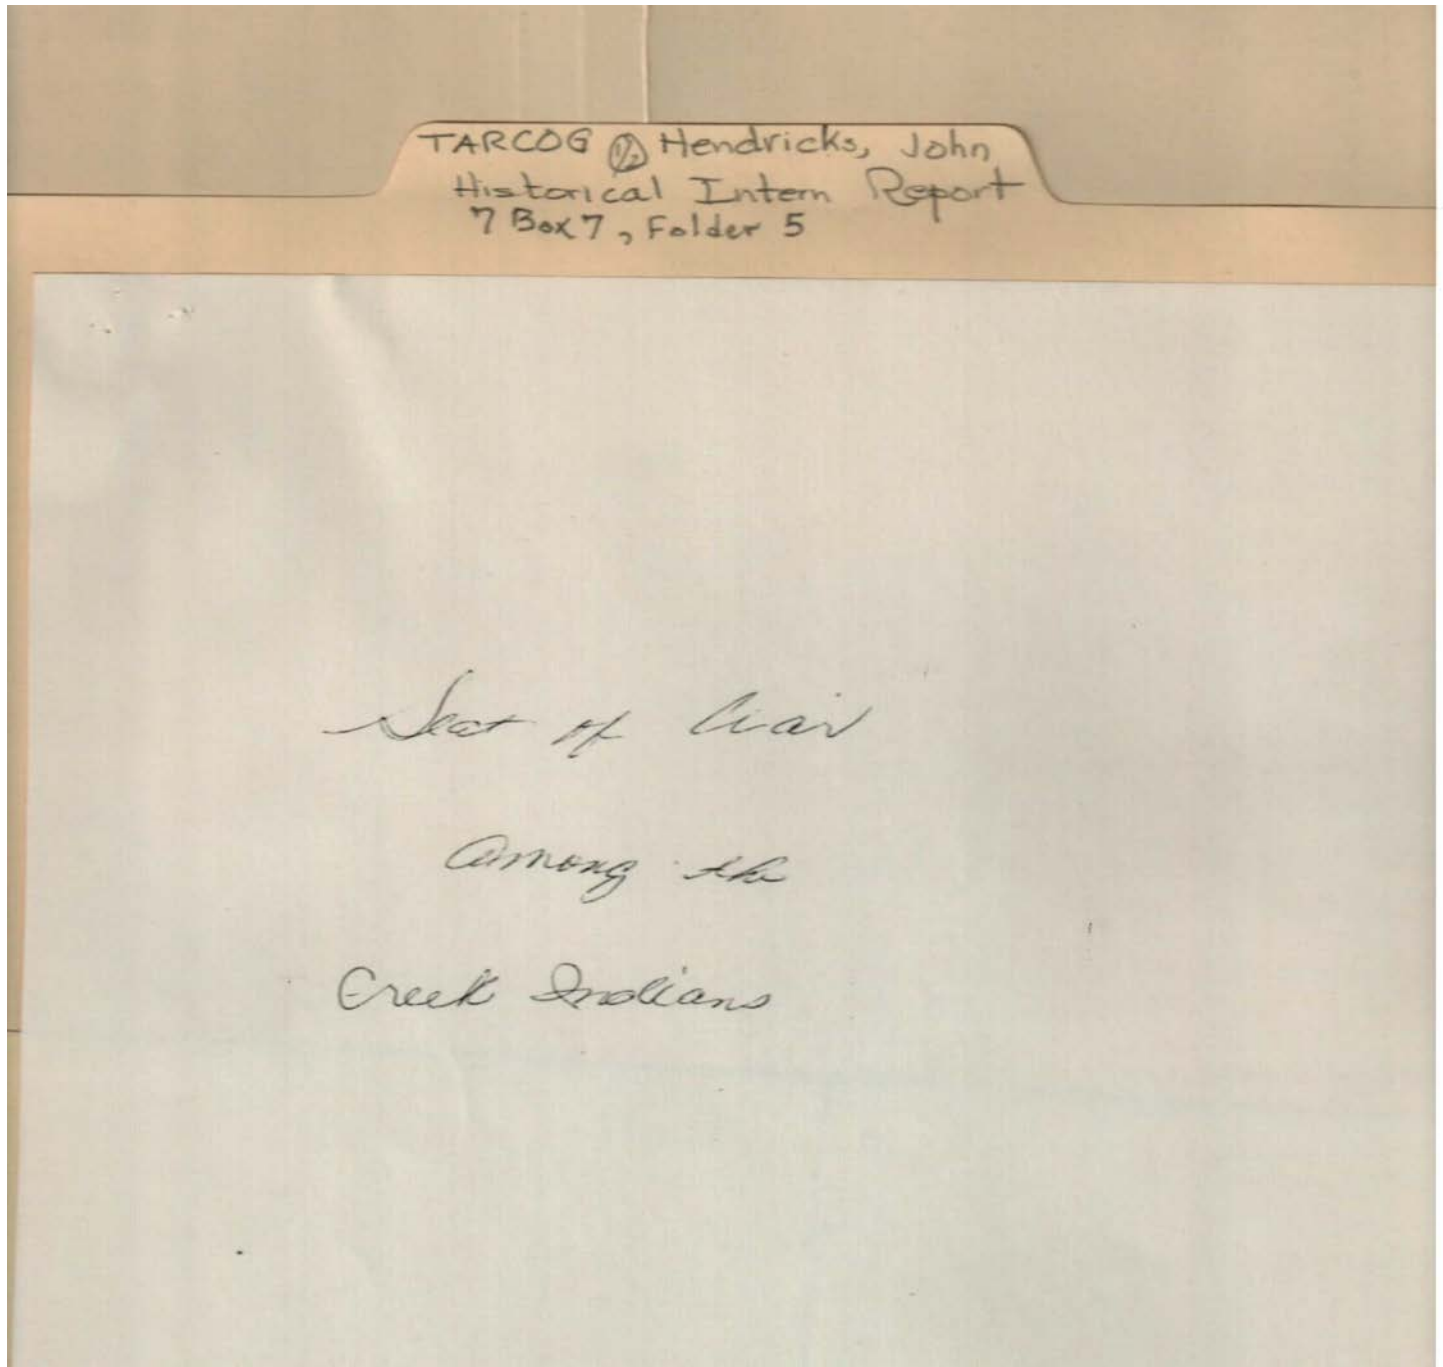 TARCOG 1/2 Hendricks, John
Historical Intern Report
7 Box 7, Folder 5
Seat of War
among the
Creek Indians